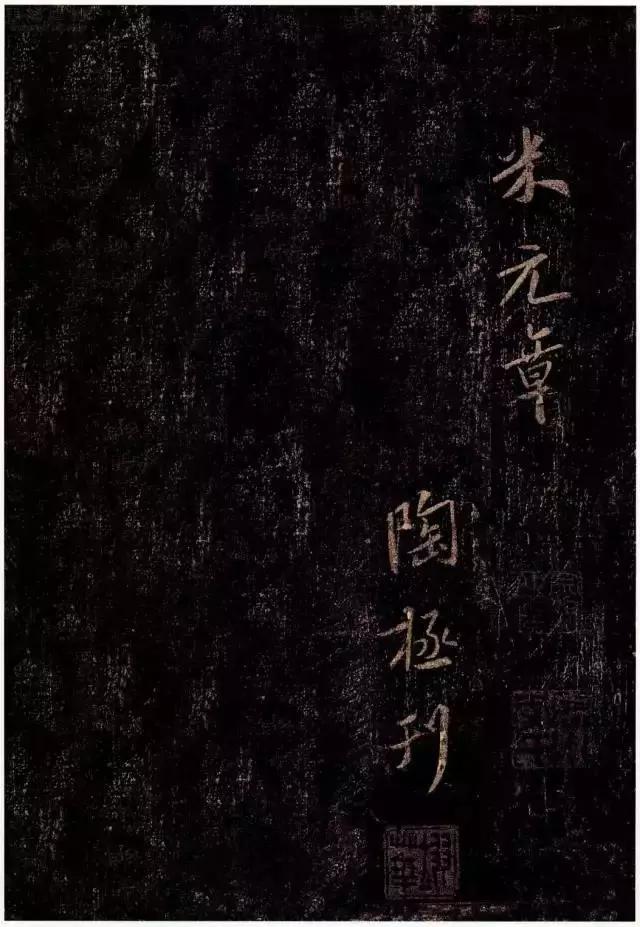 米元章
陶極刊